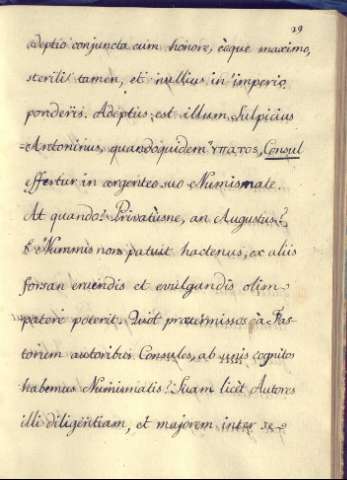 29
adeptio conjuncta cum honore, eòque maximo,
sterilis tamen, et nullius in imperio
ponderis. Adeptus est illum Sulpicius
Antoninus, quandoquidem ΥΠΑΤΟΣ, Consul
effertur in argenteo suo Numismate.
At quando? Privatusne, an Augustus?
è Nummis non patuit hactenus, ex aliis
forsan eruendis et evulgandis olim
patere poterit. Quot prætermissos à Fas-
torum autoribus Consules, ab cognitos
habemus Numismatis? Suam licit Autores
illi diligentiam, et majorem inter se